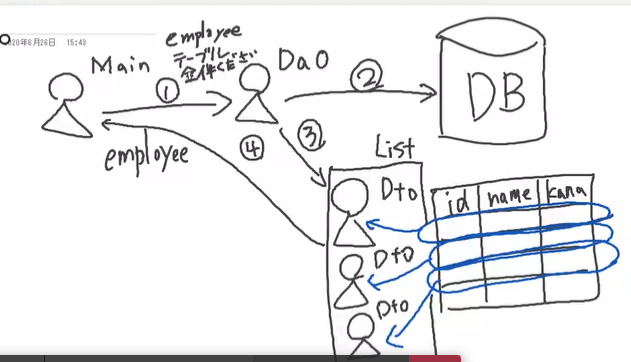 2020年6月26日 15:43
Main
①
employee
テーブルください
全件ください
DaO
②
DB
employee
④
③
List
Dto
Dto
Dto
id name kana